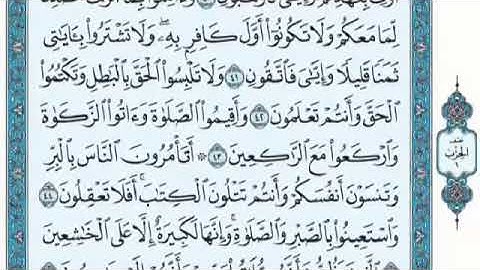 لِّمَا مَعَكُمْ وَلَا تَكُونُوٓا۟ أَوَّلَ كَافِرٍۭ بِهِۦ ۖ وَلَا تَشْتَرُوا۟ بِـَٔايَٰتِى
ثَمَنًا قَلِيلًا وَإِيَّٰىَ فَٱتَّقُونِ ٤١ وَلَا تَلْبِسُوا۟ ٱلْحَقَّ بِٱلْبَٰطِلِ وَتَكْتُمُوا۟
ٱلْحَقَّ وَأَنتُمْ تَعْلَمُونَ ٤٢ وَأَقِيمُوا۟ ٱلصَّلَوٰةَ وَءَاتُوا۟ ٱلزَّكَوٰةَ
وَٱرْكَعُوا۟ مَعَ ٱلرَّٰكِعِينَ ٤٣ ۞ أَتَأْمُرُونَ ٱلنَّاسَ بِٱلْبِرِّ
وَتَنسَوْنَ أَنفُسَكُمْ وَأَنتُمْ تَتْلُونَ ٱلْكِتَٰبَ ۚ أَفَلَا تَعْقِلُونَ ٤٤
وَٱسْتَعِينُوا۟ بِٱلصَّبْرِ وَٱلصَّلَوٰةِ ۚ وَإِنَّهَا لَكَبِيرَةٌ إِلَّا عَلَى ٱلْخَٰشِعِينَ
نصف
الحزب